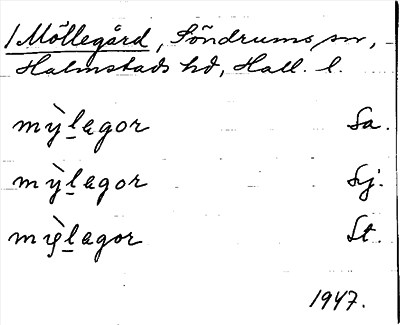 / Möllegård, Söndrums sn,
Halmstads hd, Hall. l.
mỳlagor Sa.
mỳlagor Sj.
mỳlagor St.
1947.